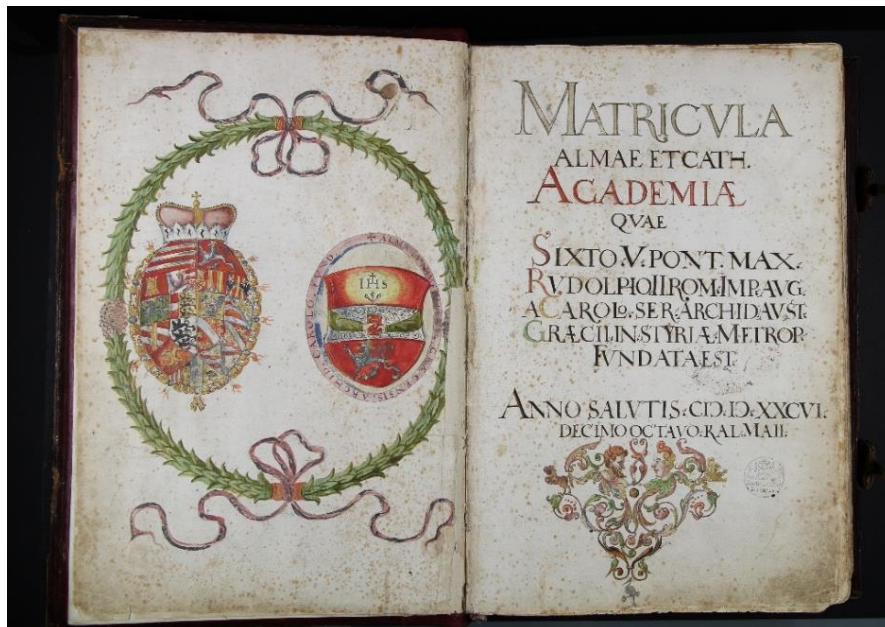 IHS
MATRICVLA
ALMAE ET CATH.
ACADEMIÆ
QVAE
SIXTO.V.PONT.MAX.
RVDOLPIO II ROM.IMP.AVG.
A CAROLO.SER.ARCHID.AVST.
GRÆCII.IN.STYRIÆ.METROP.
FVNDATA EST.
ANNO SALVTIS.CIↃ.IↃ.XXCVI.
DECIMO OCTAVO.KAL.MAII.